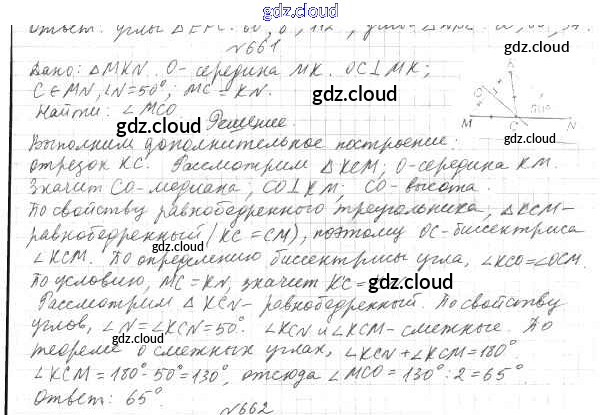 gdz.cloud
Ответ: углы
№661
gdz.cloud
Дано: △MKN. O - середина MK. OC⊥MK;
C∈MN, ∠N=50°; MC=KN.
gdz.cloud
Найти: ∠MCO
gdz.cloud
Решение.
K
O
50°
M C N
Выполним дополнительное построение:
отрезок KC. Рассмотрим △KCM, O-середина KM.
Значит CO-медиана, CO⊥KM; CO-высота.
gdz.cloud
По свойству равнобедренного треугольника, △KCM-
равнобедренный (KC=CM), поэтому OC-биссектриса
∠KCM. По определению биссектрисы угла, ∠KCO=∠OCM.
По условию, MC=KN, значит KC=
gdz.cloud
Рассмотрим △KCN-равнобедренный. По свойству
углов, ∠N=∠KCN=50°. ∠KCN и ∠KCM-смежные. По
теореме о смежных углах, ∠KCN+∠KCM=180°
gdz.cloud
∠KCM=180°-50°=130°, отсюда ∠MCO=130°:2=65°
Ответ: 65°.
gdz.cloud
№662